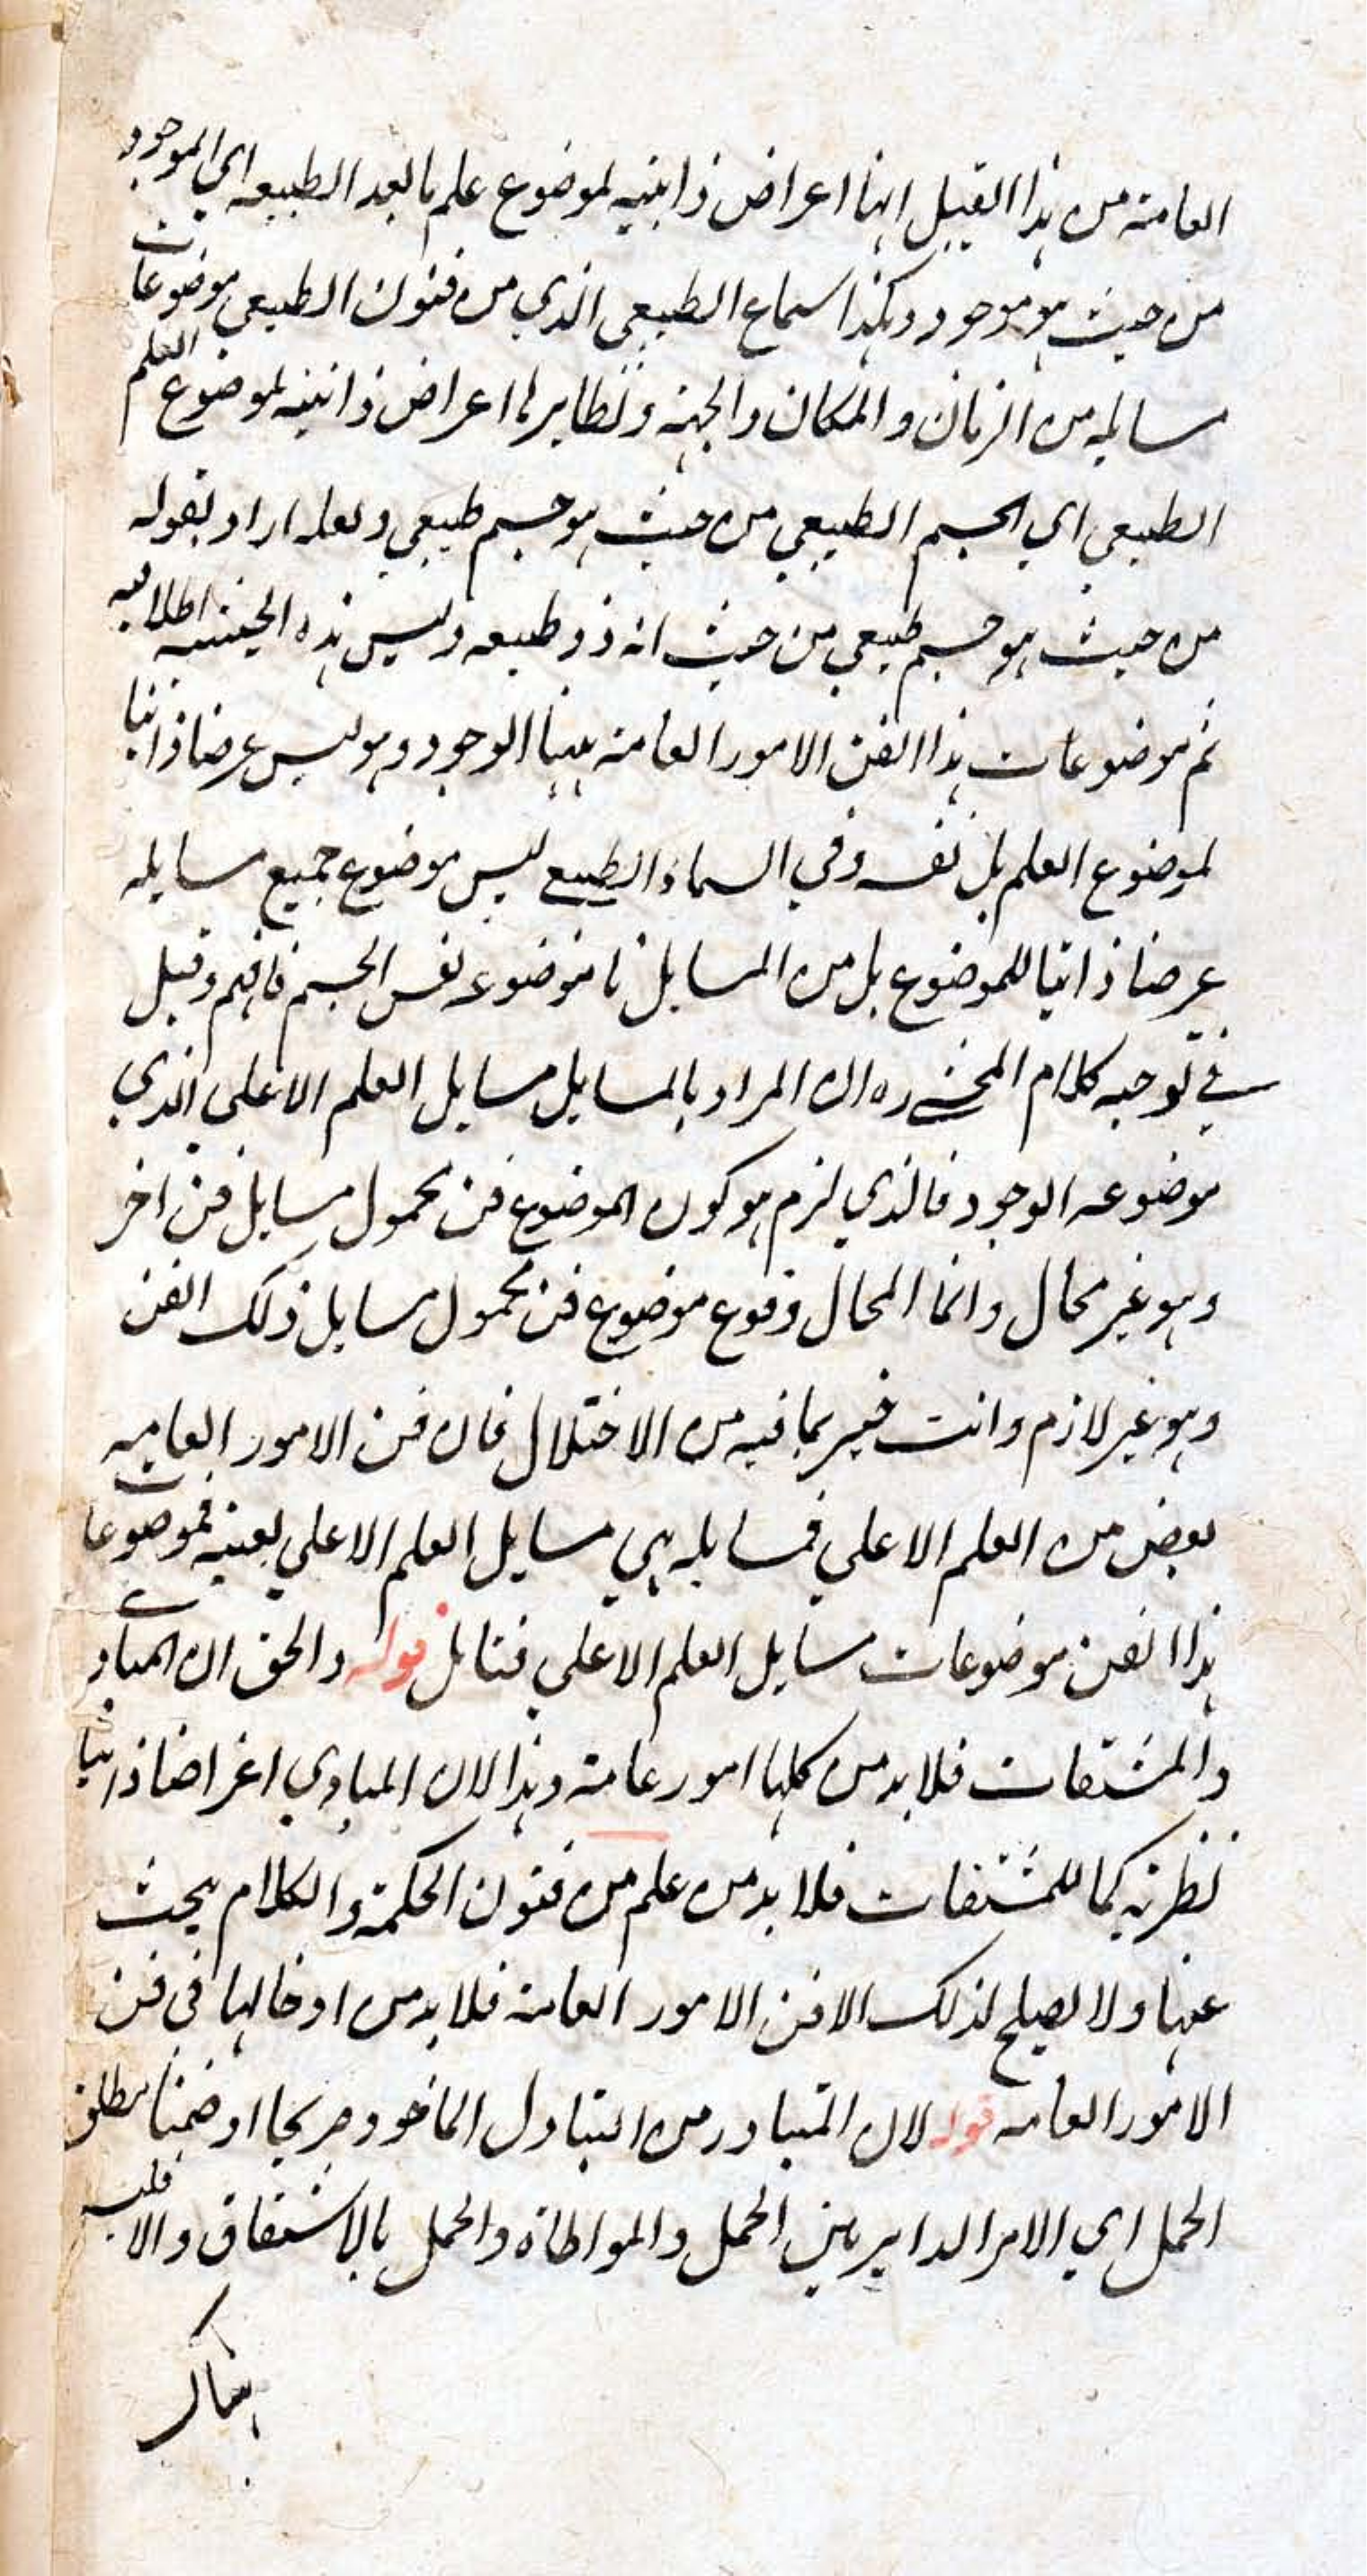 العامة من هذا القبيل انها اعراض ذاتية لموضوع علم ما بعد الطبيعه اي الموجود
من حيث هو موجود وهكذا سماع الطبيعي الذي من فنون الطبيعي موضوعات
مسايله من الزمان والمكان والجهة ونظايرها اعراض ذاتية لموضوع العلم
الطبيعي اي الجسم الطبيعي من حيث هو جسم طبيعي ولعله اراد بقوله
من حيث هو جسم طبيعي من حيث انه ذو طبيعه وليس هذه الحيثية اطلاقيه
ثم موضوعات هذا الفن الامور العامة منها الوجود وهو ليس عرضا ذاتيا
لموضوع العلم بل نفسه وفي السماء الطبيعي ليس موضوع جميع مسايله
عرضا ذاتيا للموضوع بل من المسايل ما موضوعه نفس الجسم فافهم وقيل
في توجيه كلام المحشي ره ان المراد بالمسايل مسايل العلم الاعلي الذي
موضوعه الوجود فالذي لزم هو كون الموضوع فن محمول مسايل فن اخر
وهو غير محال وانما المحال وقوع موضوع فن محمول مسايل ذلك الفن
وهو غير لازم وانت خبير بما فيه من الاختلال فان فن الامور العاميه
بعض من العلم الاعلي فمسايله هي مسايل العلم الاعلي بعينه فموضوعات
هذا الفن موضوعات مسايل العلم الاعلي فتامل قوله والحق ان المبادي
والمشتقات فلا بد من كلها امور عامة وهذا لان المبادي اعراضا ذاتيا
نظرية كما للمشتقات فلا بد من علم من فنون الحكمة والكلام يبحث
عنها ولا يصلح لذلك الا فن الامور العامة فلا بد من ادخالها في فن
الامور العامه قوله لان المتبادر من التبادل الماخوذ صريحا او ضمنا مطلق
الحمل اي الامر الداير بين الحمل والمواطاة والحمل بالاشتقاق والا فليه
هناك